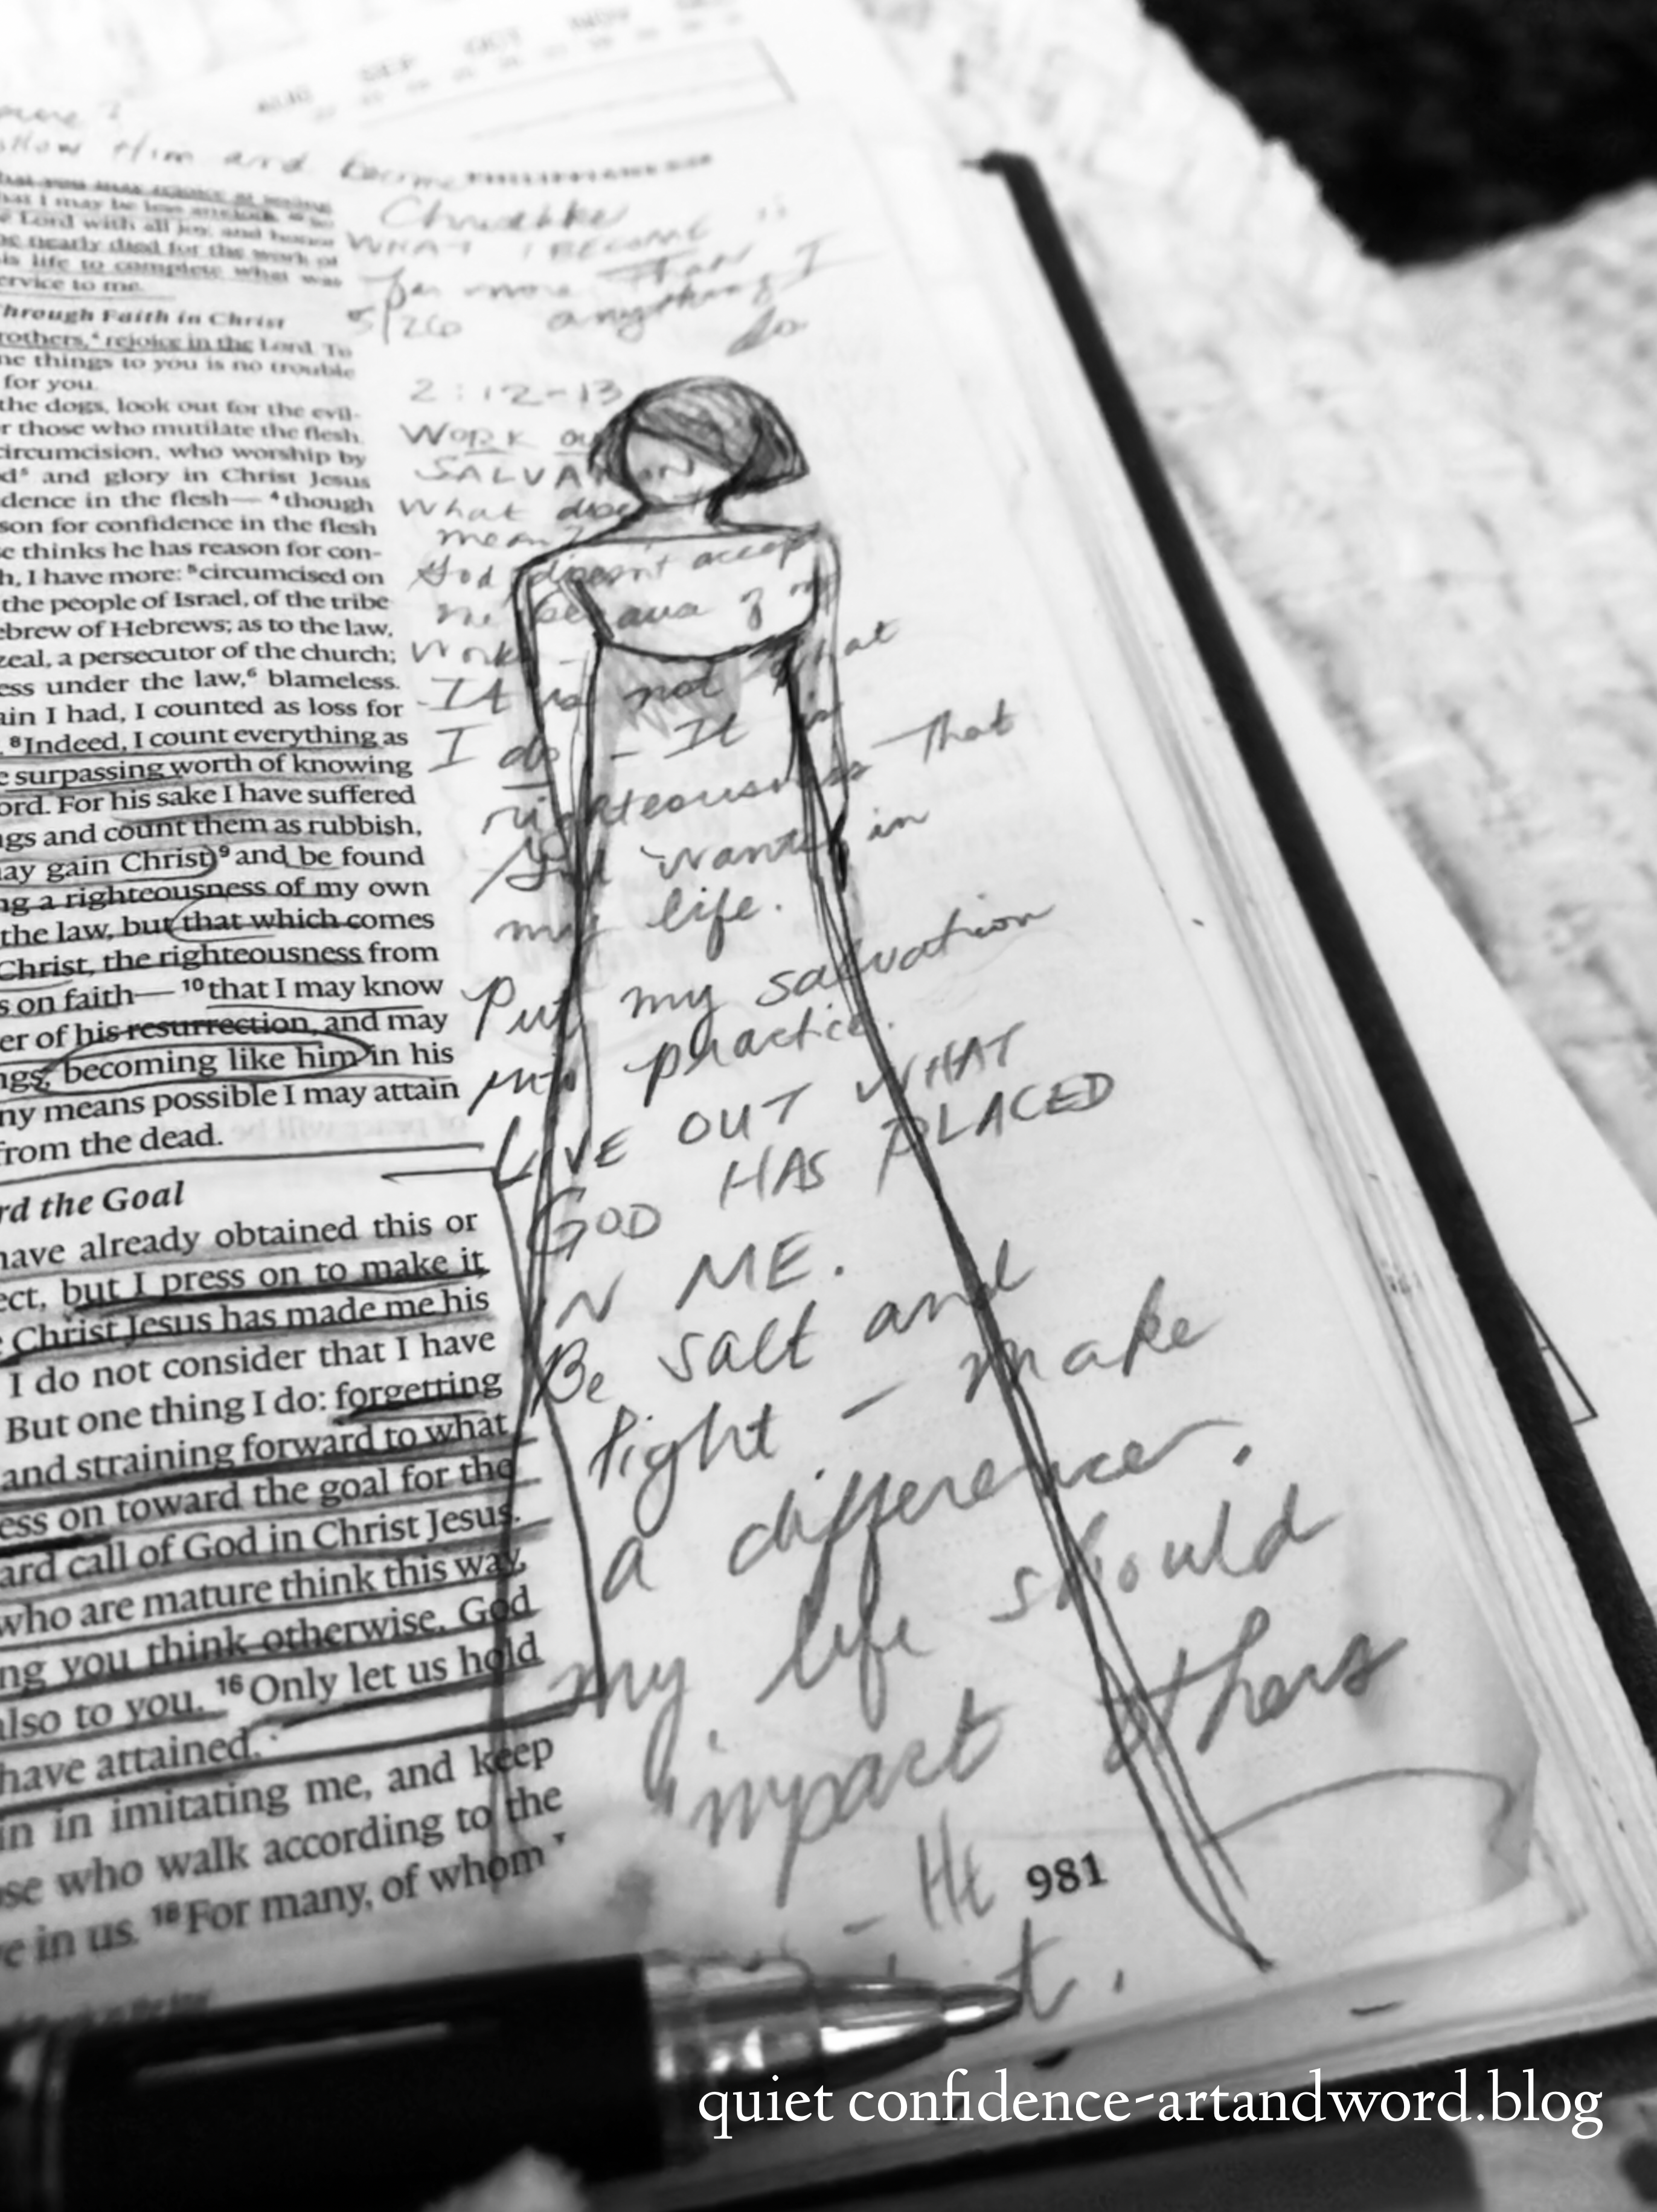 AUG SEP OCT NOV
llow Him and become
Christlike
WHAT I BECOME is
far more than
anything I
do
5/26
that you may rejoice at seeing
hat I may be less anxious. So
e Lord with all joy, and honor
he nearly died for the work of
is life to complete what was
ervice to me.
hrough Faith in Christ
rothers, rejoice in the Lord. To
me things to you is no trouble
for you.
the dogs, look out for the evil-
r those who mutilate the flesh.
circumcision, who worship by
d⁵ and glory in Christ Jesus
dence in the flesh— ⁴though
son for confidence in the flesh
e thinks he has reason for con-
h, I have more: ⁵circumcised on
the people of Israel, of the tribe
ebrew of Hebrews; as to the law,
zeal, a persecutor of the church;
ess under the law,⁶ blameless.
ain I had, I counted as loss for
⁸Indeed, I count everything as
e surpassing worth of knowing
ord. For his sake I have suffered
ngs and count them as rubbish,
ay gain Christ ⁹and be found
ng a righteousness of my own
the law, but that which comes
Christ, the righteousness from
s on faith— ¹⁰that I may know
er of his resurrection, and may
ngs, becoming like him in his
ny means possible I may attain
from the dead.
rd the Goal
have already obtained this or
ect, but I press on to make it
e Christ Jesus has made me his
I do not consider that I have
But one thing I do: forgetting
and straining forward to what
ess on toward the goal for the
ard call of God in Christ Jesus.
who are mature think this way,
ng you think otherwise, God
also to you. ¹⁶Only let us hold
have attained.
in in imitating me, and keep
ose who walk according to the
e in us. ¹⁸For many, of whom
2:12-13
WORK ou
SALVATION
What does
mean?
God doesn't accept
me because of my
works
-It is not what
I do - It is
righteousness that
God wants in
my life.
Put my salvation
into practice.
LIVE OUT WHAT
GOD HAS PLACED
IN ME.
Be salt and
light - make
a difference.
my life should
impact others
- He
t.
981
quiet confidence-artandword.blog